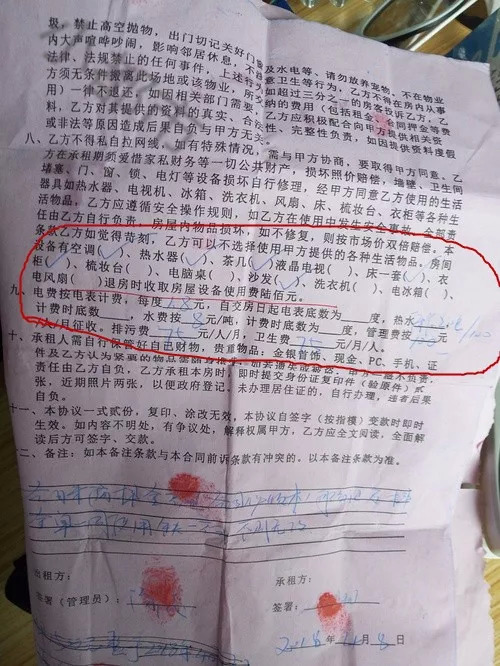 圾，禁止高空抛物，出门切记关好门窗及水电等、请勿放养宠物，不在物业
内大声喧哗吵闹，影响邻居休息，不注意卫生等行为，乙方不得在房内从事
法律、法规禁止的任何事件，上述行为如超过三分之一的房客投诉乙方，乙
方须无条件搬离此场地或该物业，所交纳的费用（包括租金、合同押金等费
用）一律不退还，如因相关部门需要，乙方应积极配合向甲方提供相关资
料，乙方对其提供的资料的真实、合法性、完整性负责，如因提供资料虚假
或非法等原因造成后果自负与甲方无关
八、乙方不得私自拉网线，如有特殊情况，需与甲方协商，要取得甲方同意。乙
方在承租期须爱惜家私财务等一切公共财产，损坏照价赔偿，墙壁、卫生间
堵塞、门、窗、锁、电灯等设备损坏自行修理，经甲方同意乙方使用的生活
器具如热水器、电视机、冰箱、洗衣机、风扇、床、梳妆台、衣柜等各种生
活物品，乙方应遵循安全操作规则，如乙方在使用中发生安全事故，全部责
任由乙方自行负责。房屋内物品损坏，如不修复，则按市场价双倍赔偿。本
条款乙方如觉得苛刻，乙方可以不选择使用甲方提供的各种生活物品。房间
设备有空调(✓)、热水器(✓)、茶几(✓)液晶电视( )、床一套(✓)、衣
柜(✓)、梳妆台( )、电脑桌( )、沙发(✓)、洗衣机( )、电冰箱( )、
电风扇( )退房时收取房屋设备使用费陆佰元。
九、电费按电表计费，每度1.8元，自交房日起电表底数为 度，热水
计费时底数为 ，水费按8元/吨，计费时底数为 度，管理费按 元
/人/月征收。排污费75元/人/月，卫生费75元/人/月。
十、承租人需自行保管好自己财物，贵重物品：金银首饰、现金、PC、手机、证
件及乙方认为紧要的物品需随身携带，如丢失或被盗，甲方一概不负责，
责任由乙方自负，乙方承租本房时，即时提交身份证复印件（验原件）贰
张，近期照片两张，以便政府登记，未办理居住证的，自行办理，违者后果
自负。
十一、本协议一式贰份，复印、涂改无效，本协议自签字（按指模）变款时即时
生效。如内容不明处，有争议处，解释权属甲方，乙方应全文阅读，全面解
读后方可签字、交款。
十二、备注：如本备注条款与本合同前诉条款有冲突的，以本备注条款为准。
出租方：
承租方：
签署（管理员）：
签署：
2018年 月8日